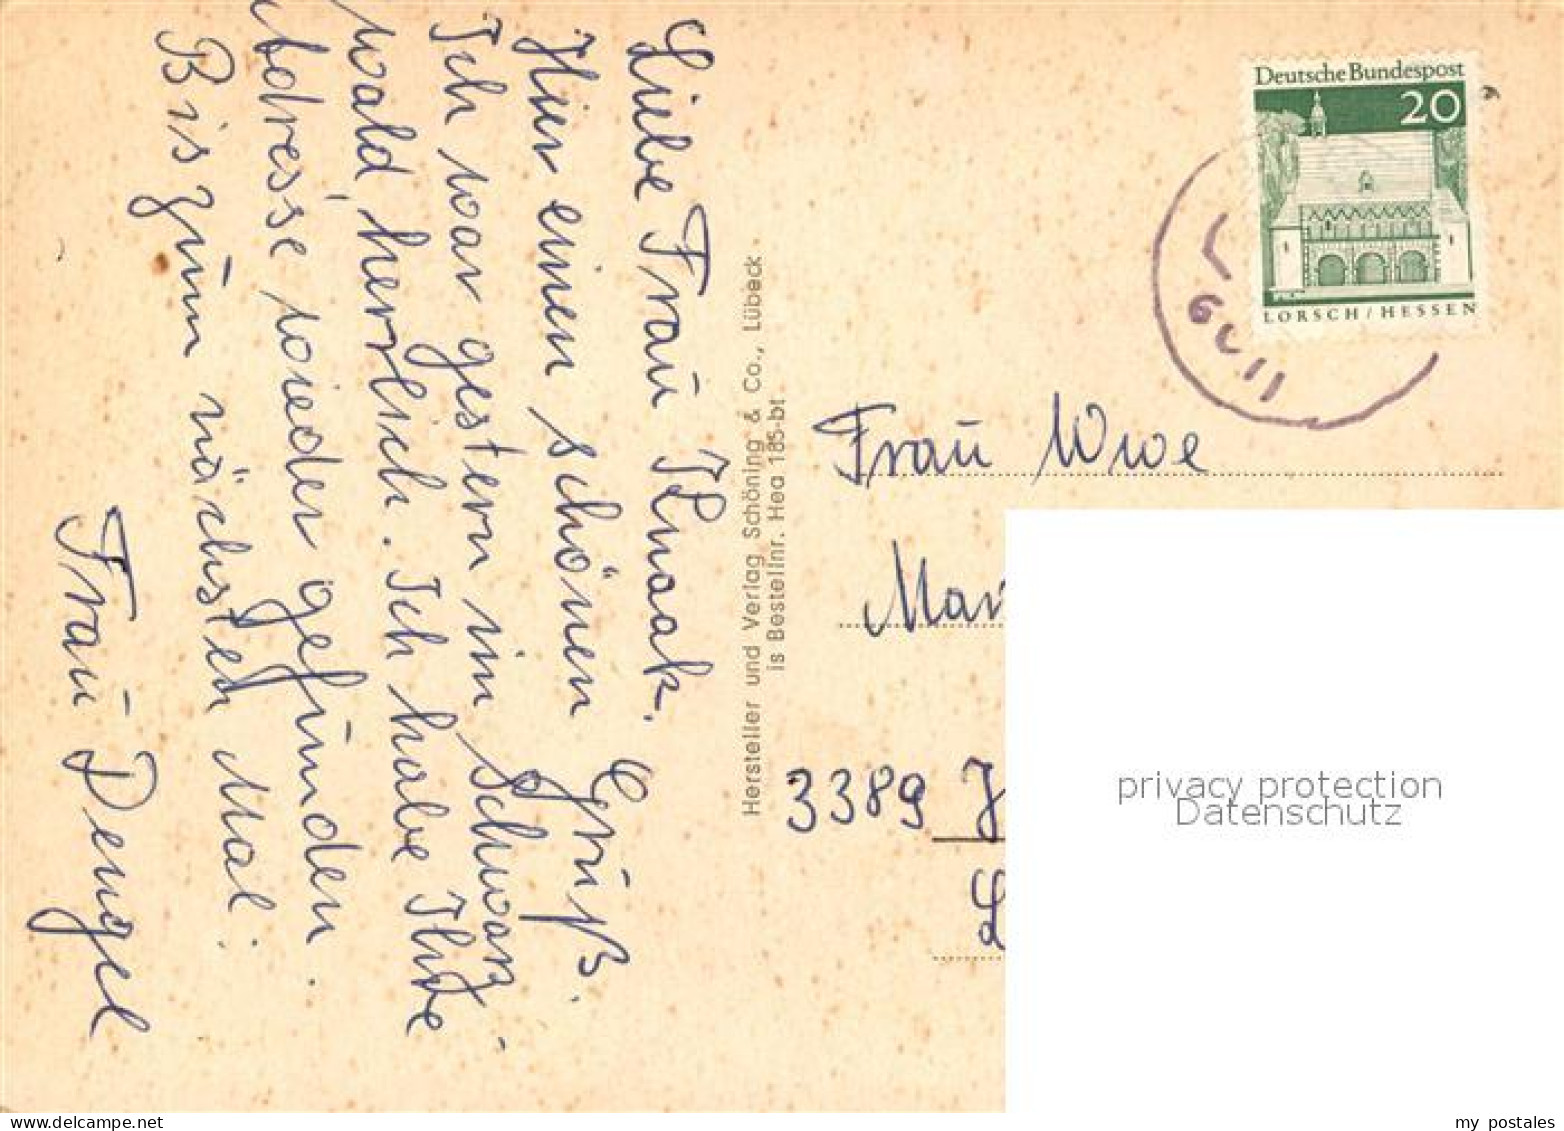 Liebe Frau Knaak.
Hier einen schönen Gruß.
Ich war gestern im Schwarz-
wald, herrlich. Ich habe Ihre
Adresse wieder gefunden.
Bis zum nächsten Mal:
Frau Dengel
Hersteller und Verlag Schöning & Co., Lübeck
is Bestellnr. Hea 185-bt
Deutsche Bundespost
20
LORSCH / HESSEN
Frau Wwe
3389
privacy protection
Datenschutz
my postales